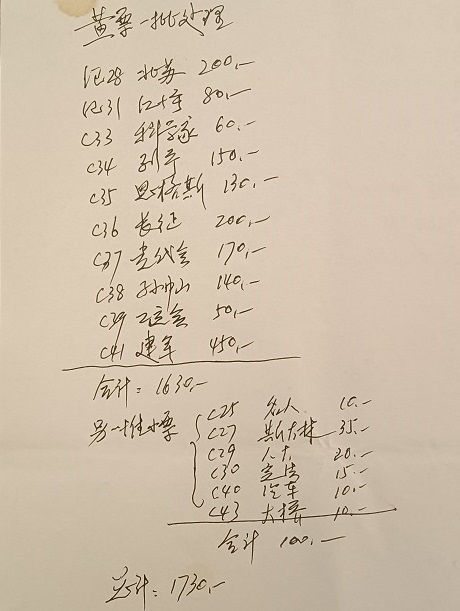 黄票一批处理
纪28 北苏 200,-
纪31 红十字 80,-
C33 科学家 60,-
C34 列宁 150,-
C35 恩格斯 130,-
C36 长征 200,-
C37 党代会 170,-
C38 孙中山 140,-
C39 工运会 50,-
C41 建军 450,-
合计:1630,-
另一小票
C25 名人 10,-
C27 斯大林 35,-
C29 人大 20,-
C30 宪法 15,-
C40 汽车 10,-
C43 大桥 10,-
合计 100,-
总计:1730,-